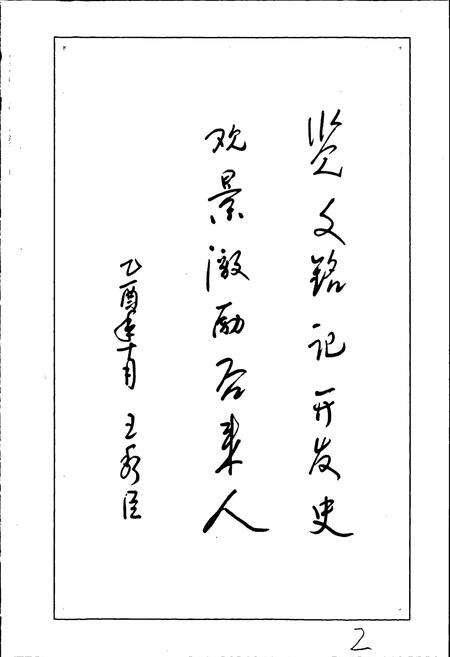 览文铭记开发史
观景激励后来人
乙酉年十月 王秀臣
2